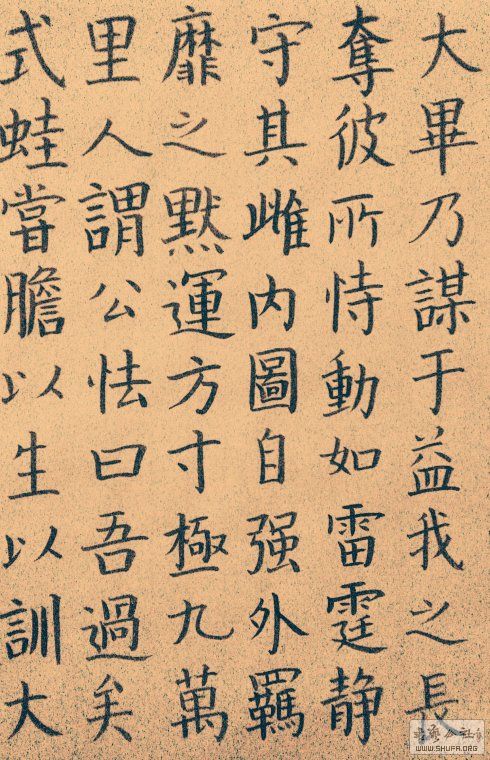 大畢乃謀于益我之長
奪彼所恃動如雷霆静
守其雌内圖自强外羈
靡之默運方寸極九萬
里人謂公怯曰吾過矣
式蛙嘗膽以生以訓大
WWW.SHUFA.ORG